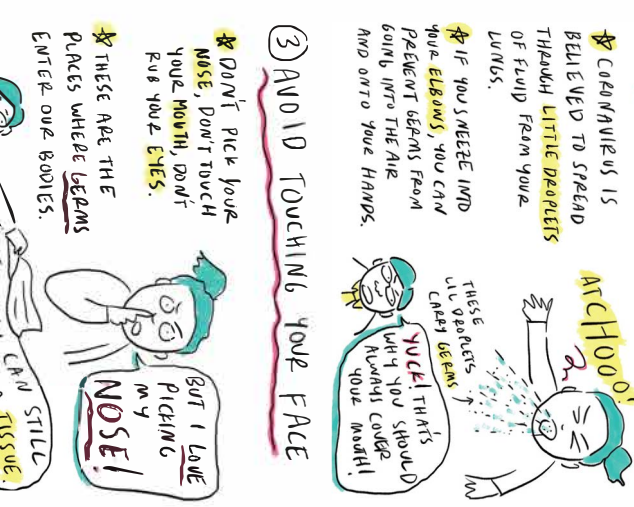 ☆ CORONAVIRUS IS
BELIEVED TO SPREAD
THROUGH LITTLE DROPLETS
OF FLUID FROM YOUR
LUNGS.
☆ IF YOU SNEEZE INTO
YOUR ELBOWS, YOU CAN
PREVENT GERMS FROM
GOING INTO THE AIR
AND ONTO YOUR HANDS.
ATCHOOO!
THESE
LIL DROPLETS
CARRY GERMS
YUCK! THAT'S
WHY YOU SHOULD
ALWAYS COVER
YOUR MOUTH!
3 AVOID TOUCHING YOUR FACE
☆ DON'T PICK YOUR
NOSE, DON'T TOUCH
YOUR MOUTH, DON'T
RUB YOUR EYES.
☆ THESE ARE THE
PLACES WHERE GERMS
ENTER OUR BODIES.
BUT I LOVE
PICKING
MY
NOSE!
CAN STILL
TISSUE.